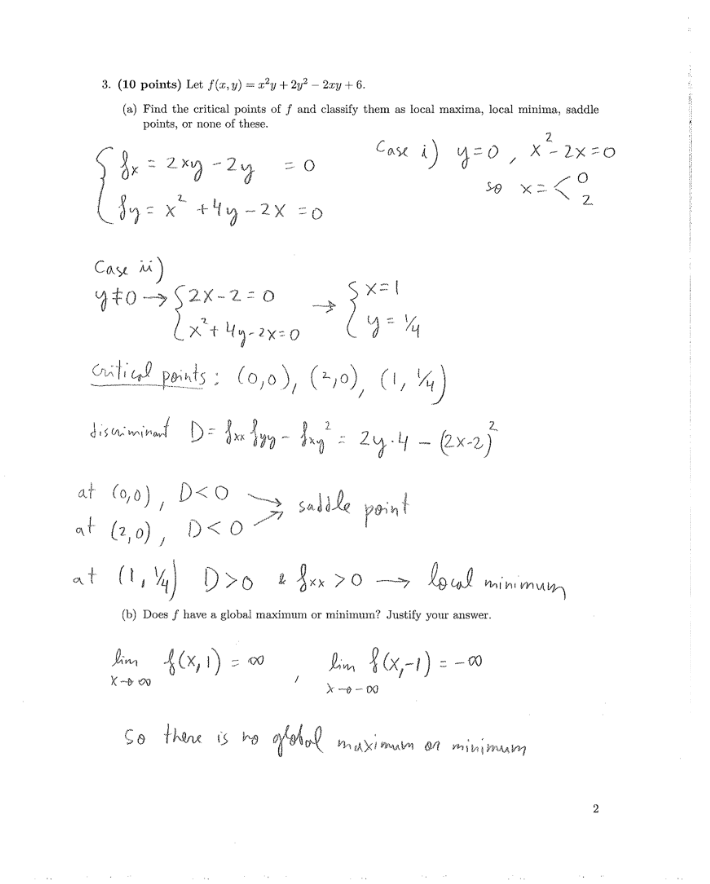 3. (10 points) Let f(x, y) = x²y + 2y² − 2xy + 6.
(a) Find the critical points of f and classify them as local maxima, local minima, saddle
points, or none of these.
{ fx = 2xy - 2y = 0
{ fy = x² + 4y - 2x = 0
Case i) y=0, x² - 2x = 0
so x = < 0
2
Case ii)
y≠0 → { 2x - 2 = 0 → { x = 1
{ x² + 4y - 2x = 0 { y = 1/4
Critical points: (0,0), (2,0), (1, 1/4)
discriminant D = fxx fyy - fxy² = 2y·4 - (2x-2)²
at (0,0), D<0 → saddle point
at (2,0), D<0 →
at (1, 1/4) D>0 & fxx >0 → local minimum
(b) Does f have a global maximum or minimum? Justify your answer.
lim f(x,1) = ∞ , lim f(x,-1) = -∞
x→∞ x→-∞
So there is no global maximum or minimum
2